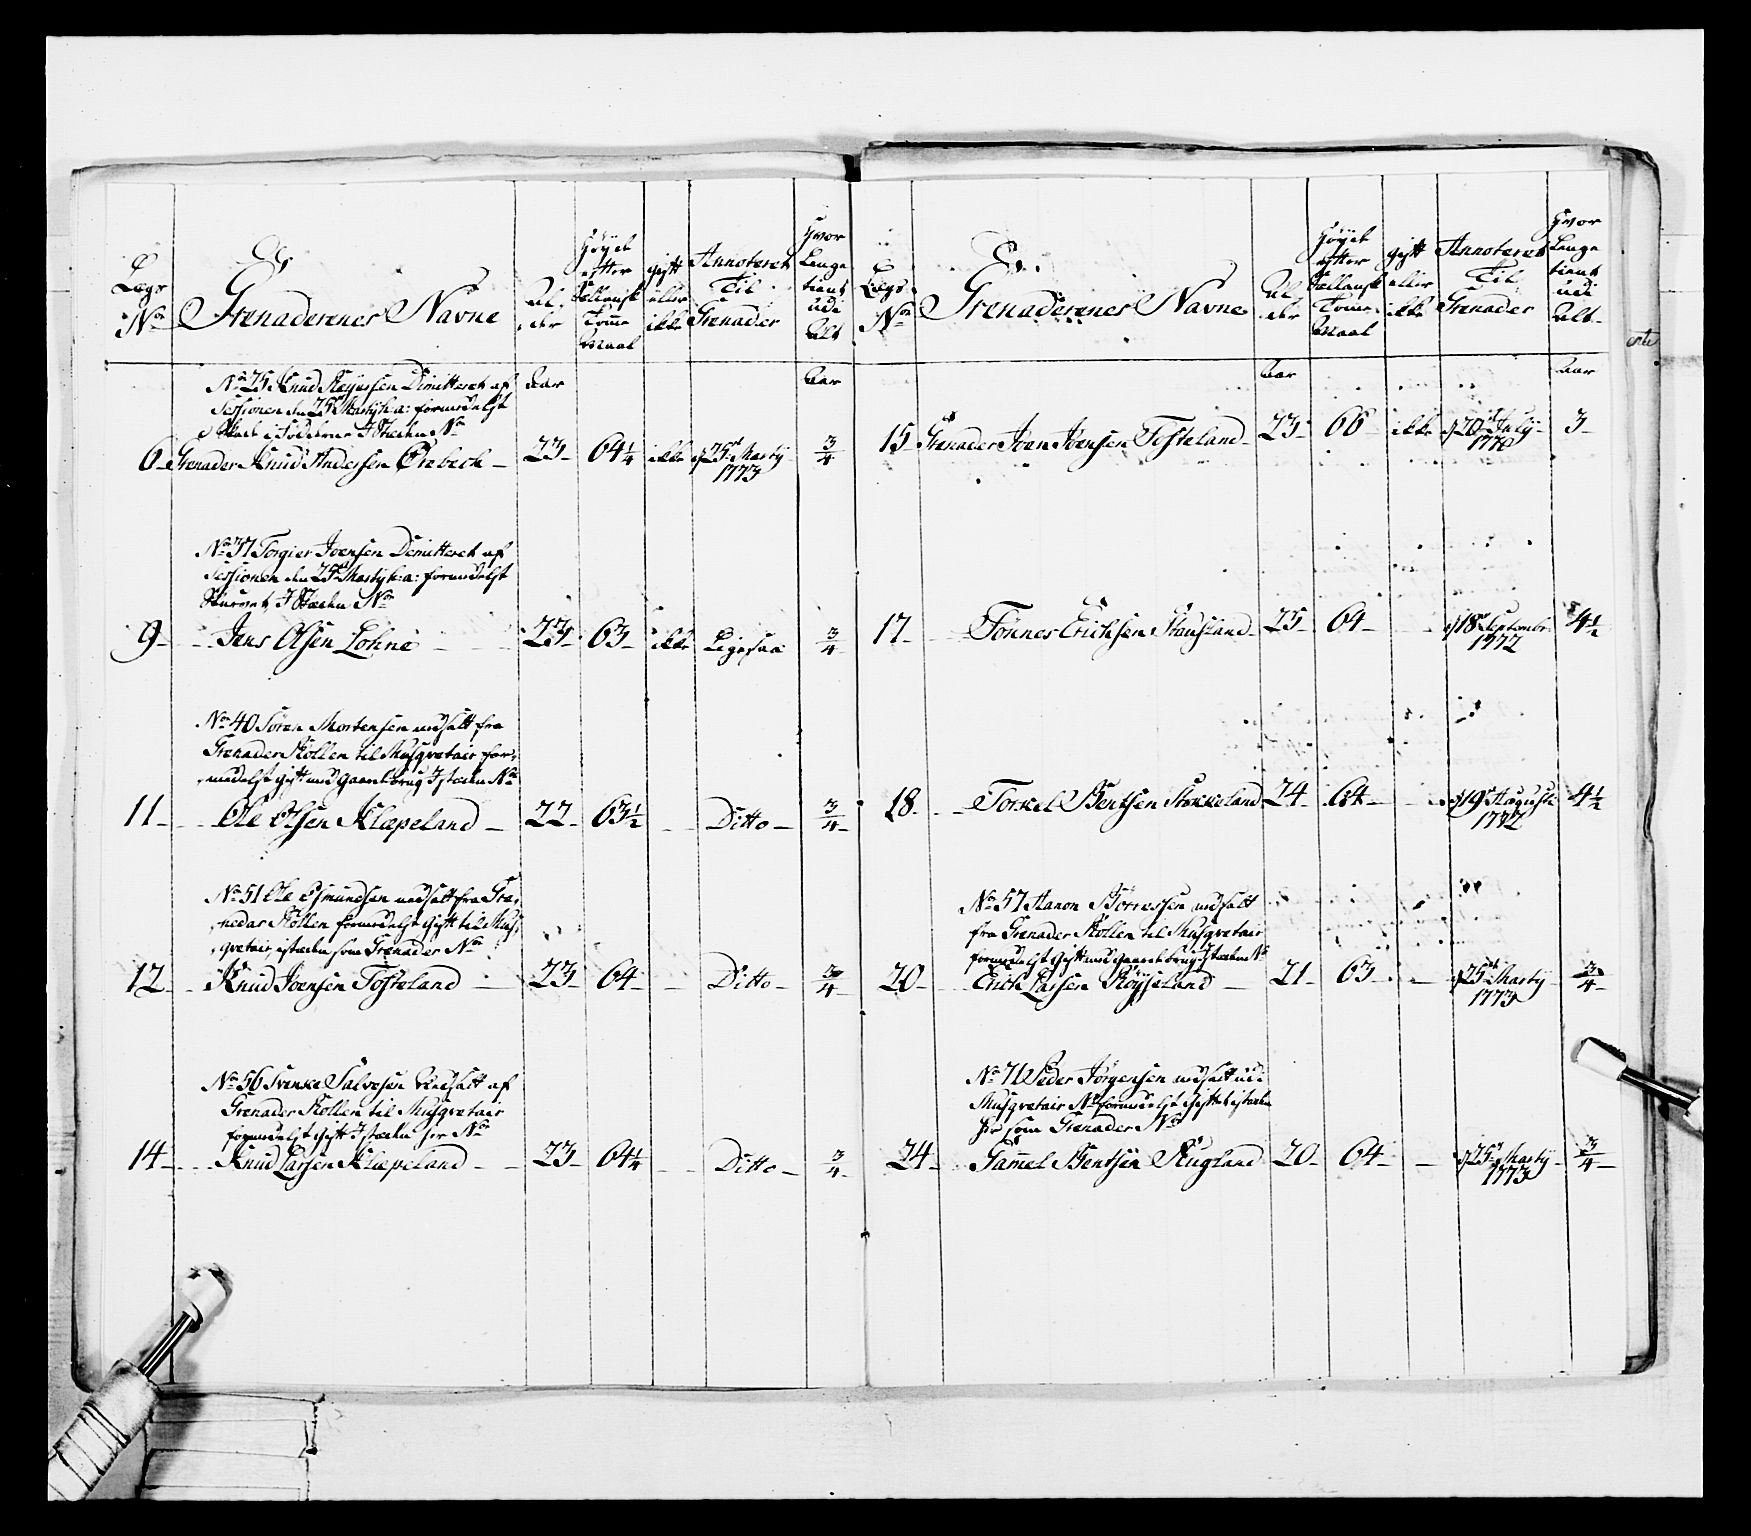 Lægs No
Grenaderenes Navne
Al-
der
Høyet
efter
Sellansk
Tomme
Maal
gift
eller
ikke
Annoteret
Til
Grenader
Hvor
Længe
tient
udi
Alt
Aar
Aar
No 25 Knud Dimitteret af
Sessionen den 25de Martÿ h: a: formedelst
I Stæden No
6 Grenader Knud Andersen Ørebech 23 64 1/4 ikke d 25de Martÿ 1773 3/4
No 37 Torgier Joensen Dimitteret af
Sessionen den 25de Martÿ h: a: formedelst
Skurvet, I Stæden No
9 Jens Olsen Lohne 23 63 ikke Ligesaa 3/4
No 40 Søren Mortensen udsatt fra
Grenader Rollen til Musqvetair for-
medelst gift med gaardbrug I stæden No
11 Ole Olsen Klæpeland 22 63 1/2 Ditto 3/4
No 51 Ole Osmundsen udsatt fra Gre-
nedar Rollen formedelst gift til Mus-
qvetair, istæden som Grenader No
12 Knud Joensen Tofteland 23 64 Ditto 3/4
No 56 Svenke Salvesen Udsatt af
Grenader Rollen til Musqvetair
formedelst gift I stæden her No
14 Knud Larsen Klæpeland 23 64 1/4 Ditto 3/4
Lægs No
Grenaderenes Navne
Al-
der
Høyet
efter
Sellansk
Tomme
Maal
gift
eller
ikke
Annoteret
Til
Grenader
Hvor
Længe
tient
udi
Alt
Aar
Aar
15 Grenader Joen Joensen Tofteland 23 66 ikke d 20de July 1770 3
17 Tønnes Erichsen Stausland 25 64 d 18de Septembr 1772 4 1/2
18 Torkel Bentsen Stokkeland 24 64 d 19de Augusti 1772 4 1/2
No 57 Aanon Børresen udsatt
fra Grenader Rollen til Musqvetair
formedelst gift med gaardbrug I stæden No
20 Erich Larsen Røyseland 21 63 d 25de Martÿ 1773 3/4
No 71 Peder Jørgensen udsatt udi
Musqvetair No formedelst gift istæden
her som Grenader No
24 Gamel Bentsen Kugland 20 64 d 25de Martÿ 1773 3/4